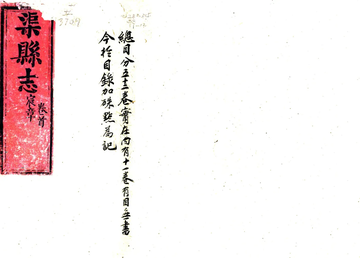 渠縣志
卷首
宸章
總目分五十三卷實在內有十一卷有目無書
今於目錄加硃點為記